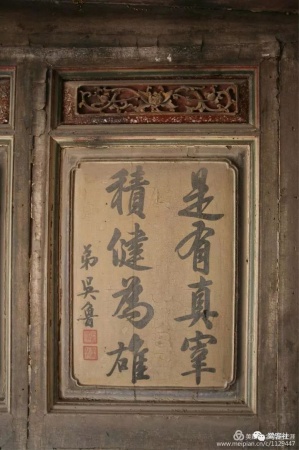 是有真宰
積健為雄
弟吳魯
美篇
www.meipian.cn/c/1129447